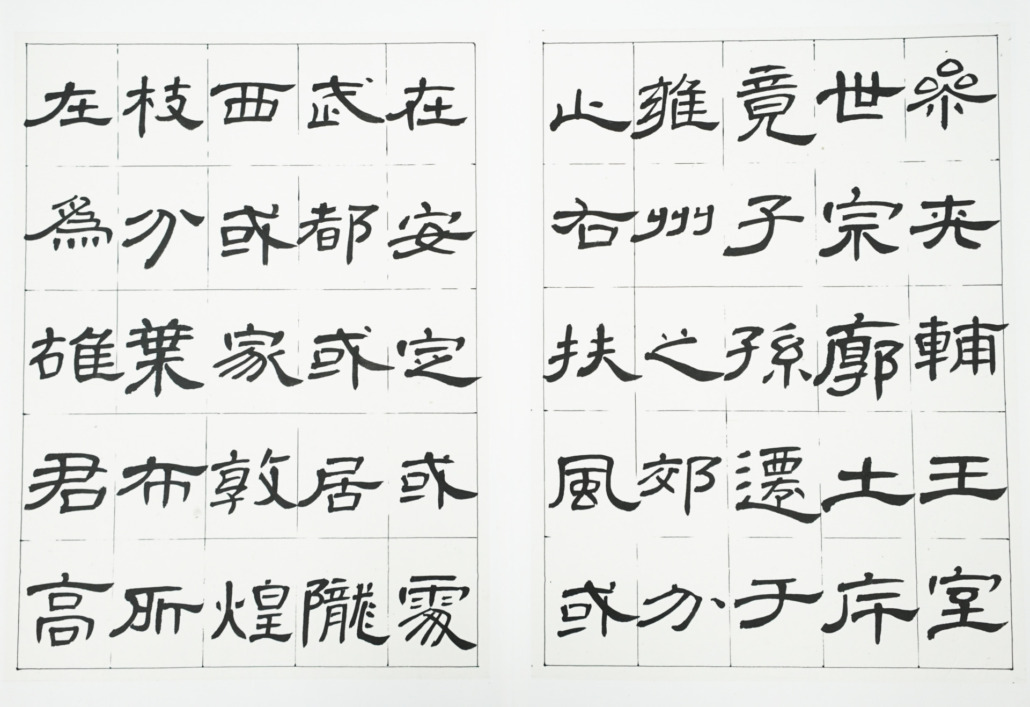 參夾輔王室
世宗廓土斥
竟子孫遷于
雍州之郊分
止右扶風或
在安定或處
武都或居隴
西或家敦煌
枝分葉布所
在爲雄君高